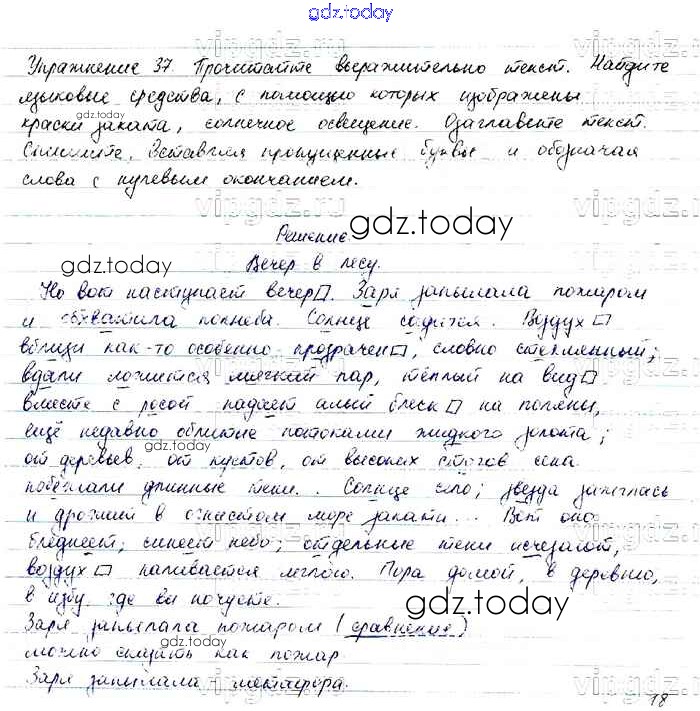 gdz.today
Упражнение 37. Прочитайте выразительно текст. Найдите
языковые средства, с помощью которых изображены
краски заката, солнечное освещение. Озаглавьте текст.
Спишите, вставляя пропущенные буквы и обозначая
слова с нулевым окончанием.
Решение.
Вечер в лесу.
Но вот наступает вечер□. Заря запылала пожаром
и обхватила полнеба. Солнце садится. Воздух□
вблизи как-то особенно прозрачен□, словно стеклянный;
вдали ложится мягкий пар, тёплый на вид□
вместе с росой падает алый блеск□ на поляны,
ещё недавно облитые потоками жидкого золота;
от деревьев, от кустов, от высоких стогов сена
побежали длинные тени.. Солнце село; звезда зажглась
и дрожит в огнистом море заката... Вот оно
бледнеет; синеет небо; отдельные тени исчезают,
воздух□ наливается мглою. Пора домой, в деревню,
в избу, где вы ночуете.
Заря запылала пожаром (сравнение)
можно сказать как пожар
Заря запылала - метафора.
18
gdz.today
gdz.today
gdz.today
gdz.today
gdz.today
vipgdz.ru
vipgdz.ru
vipgdz.ru
vipgdz.ru